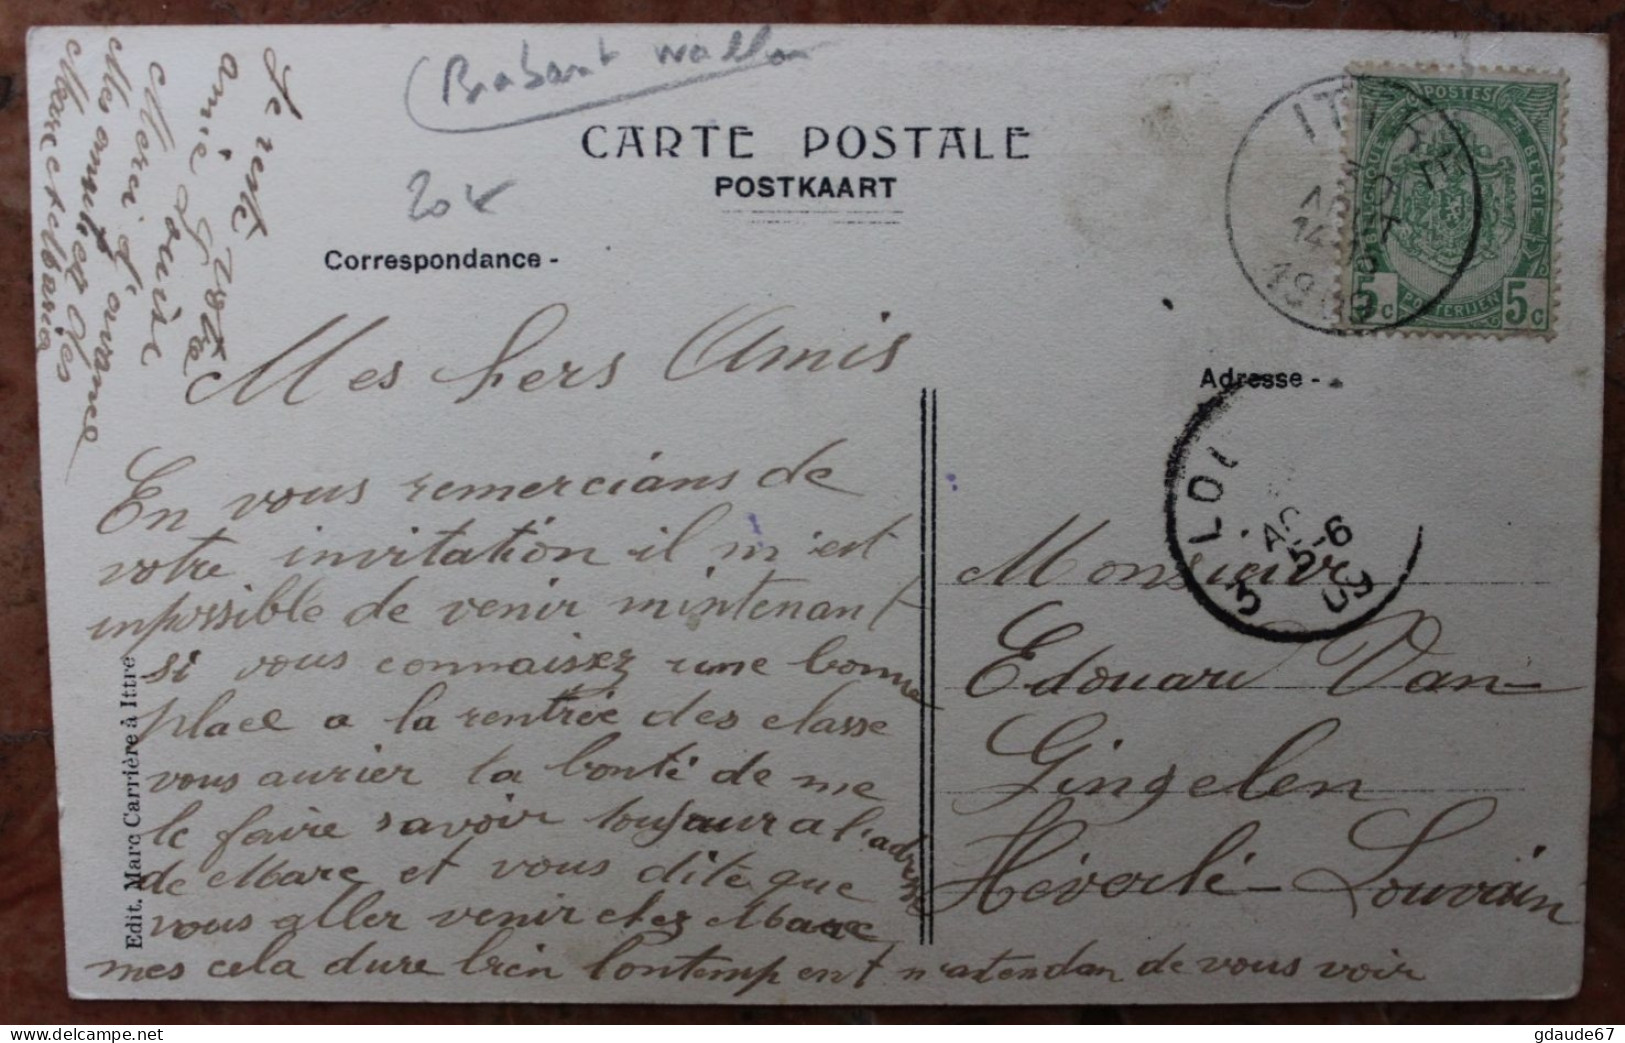 (Brabant wallon
CARTE POSTALE
POSTKAART
20
Correspondance -
Adresse -
ITTRE
14
1909
POSTES
BELGIQUE
BELGIE
POSTERIJEN
5c
5c
LOU
5-6
09
3
Mes hers Amis
En vous remercians de
votre invitation il m'est
inpossible de venir mintenant
si vous connaisez une bonne
place a la rentrée des classe
vous aurier la bonté de me
le faire savoir toujour a l'adresse
de Marc et vous dite que
vous aller venir chez Marc
mes cela dure bien lontemp ent n'atendan de vous voir
Je reste votre
amie Louise
Merci d'avance
Mes amitiez des
Marc et Maria
Monsieur
Edouard Van-
Gingelen
Héverlé - Louvain
Edit. Marc Carrière à Ittre
gdaude67